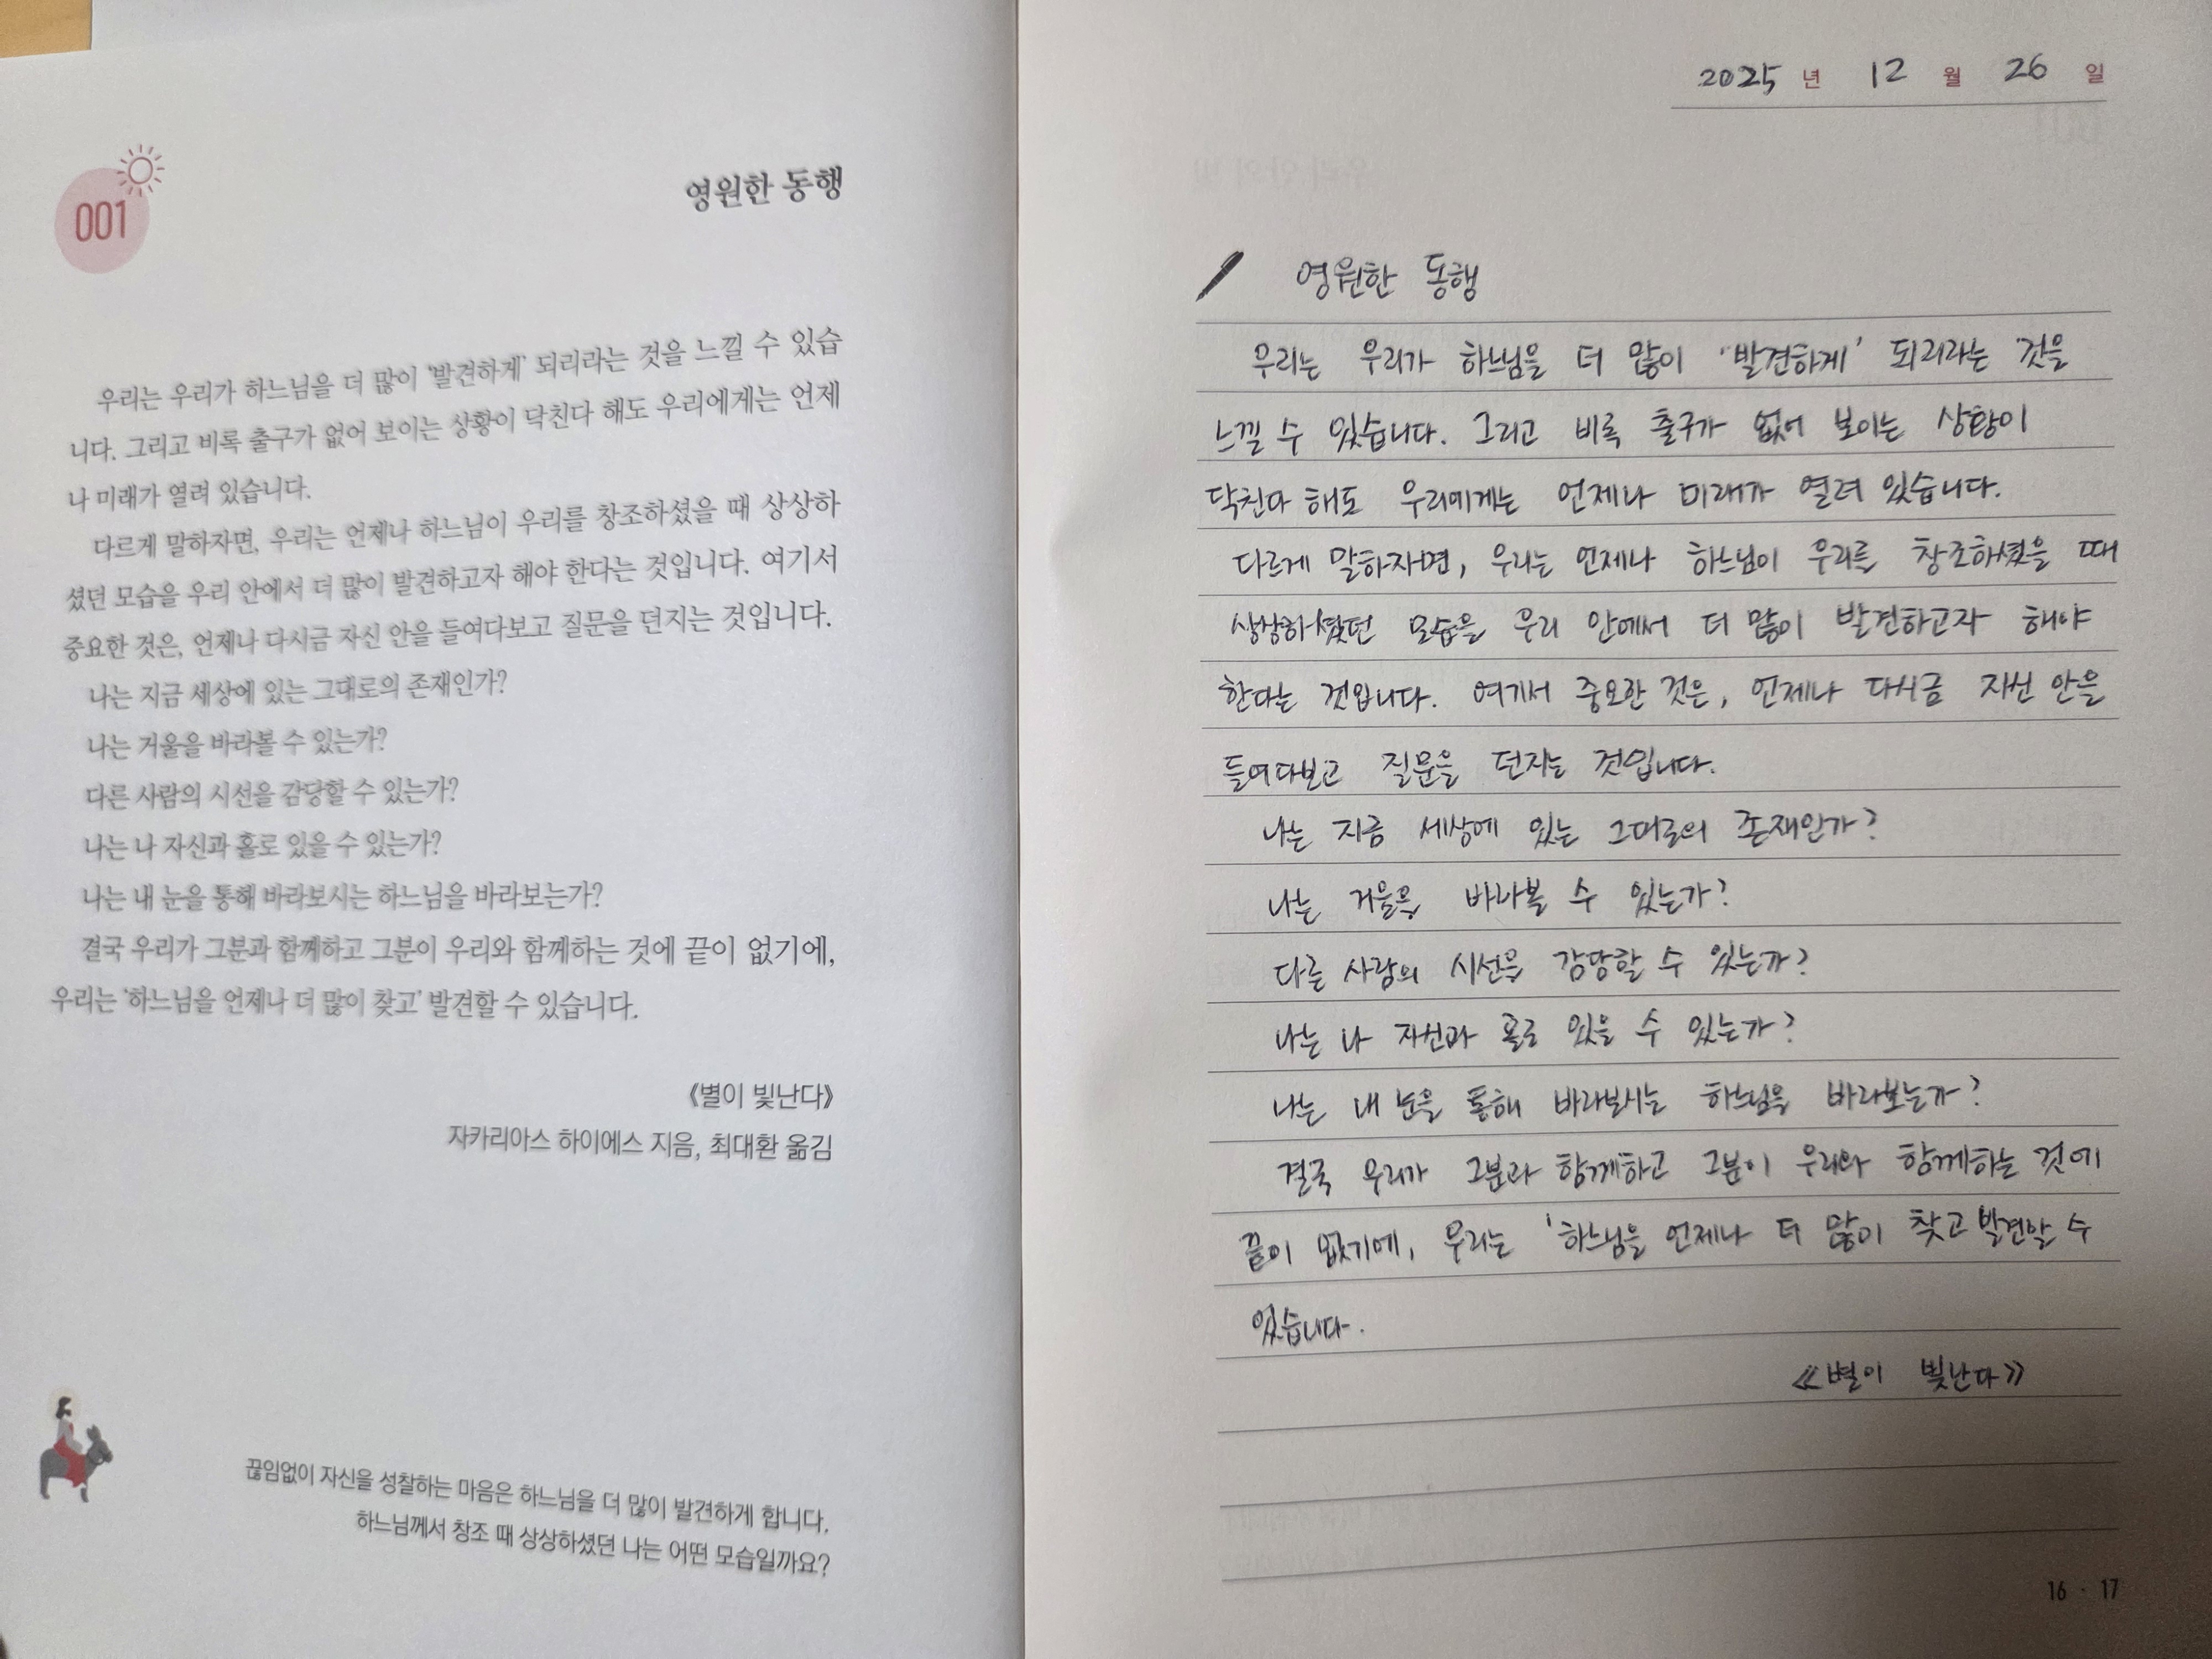 001
영원한 동행
우리는 우리가 하느님을 더 많이 ‘발견하게’ 되리라는 것을 느낄 수 있습
니다. 그리고 비록 출구가 없어 보이는 상황이 닥친다 해도 우리에게는 언제
나 미래가 열려 있습니다.
다르게 말하자면, 우리는 언제나 하느님이 우리를 창조하셨을 때 상상하
셨던 모습을 우리 안에서 더 많이 발견하고자 해야 한다는 것입니다. 여기서
중요한 것은, 언제나 다시금 자신 안을 들여다보고 질문을 던지는 것입니다.
나는 지금 세상에 있는 그대로의 존재인가?
나는 거울을 바라볼 수 있는가?
다른 사람의 시선을 감당할 수 있는가?
나는 나 자신과 홀로 있을 수 있는가?
나는 내 눈을 통해 바라보시는 하느님을 바라보는가?
결국 우리가 그분과 함께하고 그분이 우리와 함께하는 것에 끝이 없기에,
우리는 ‘하느님을 언제나 더 많이 찾고’ 발견할 수 있습니다.
《별이 빛난다》
자카리아스 하이에스 지음, 최대환 옮김
끊임없이 자신을 성찰하는 마음은 하느님을 더 많이 발견하게 합니다.
하느님께서 창조 때 상상하셨던 나는 어떤 모습일까요?
2025 년 12 월 26 일
영원한 동행
우리는 우리가 하느님을 더 많이 '발견하게' 되리라는 것을
느낄 수 있습니다. 그리고 비록 출구가 없어 보이는 상황이
닥친다 해도 우리에게는 언제나 미래가 열려 있습니다.
다르게 말하자면, 우리는 언제나 하느님이 우리를 창조하셨을 때
상상하셨던 모습을 우리 안에서 더 많이 발견하고자 해야
한다는 것입니다. 여기서 중요한 것은, 언제나 다시금 자신 안을
들여다보고 질문을 던지는 것입니다.
나는 지금 세상에 있는 그대로의 존재인가?
나는 거울을 바라볼 수 있는가?
다른 사람의 시선을 감당할 수 있는가?
나는 나 자신과 홀로 있을 수 있는가?
나는 내 눈을 통해 바라보시는 하느님을 바라보는가?
결국 우리가 그분과 함께하고 그분이 우리와 함께하는 것에
끝이 없기에, 우리는 '하느님을 언제나 더 많이 찾고 발견할 수
있습니다.
《별이 빛난다》
16 · 17